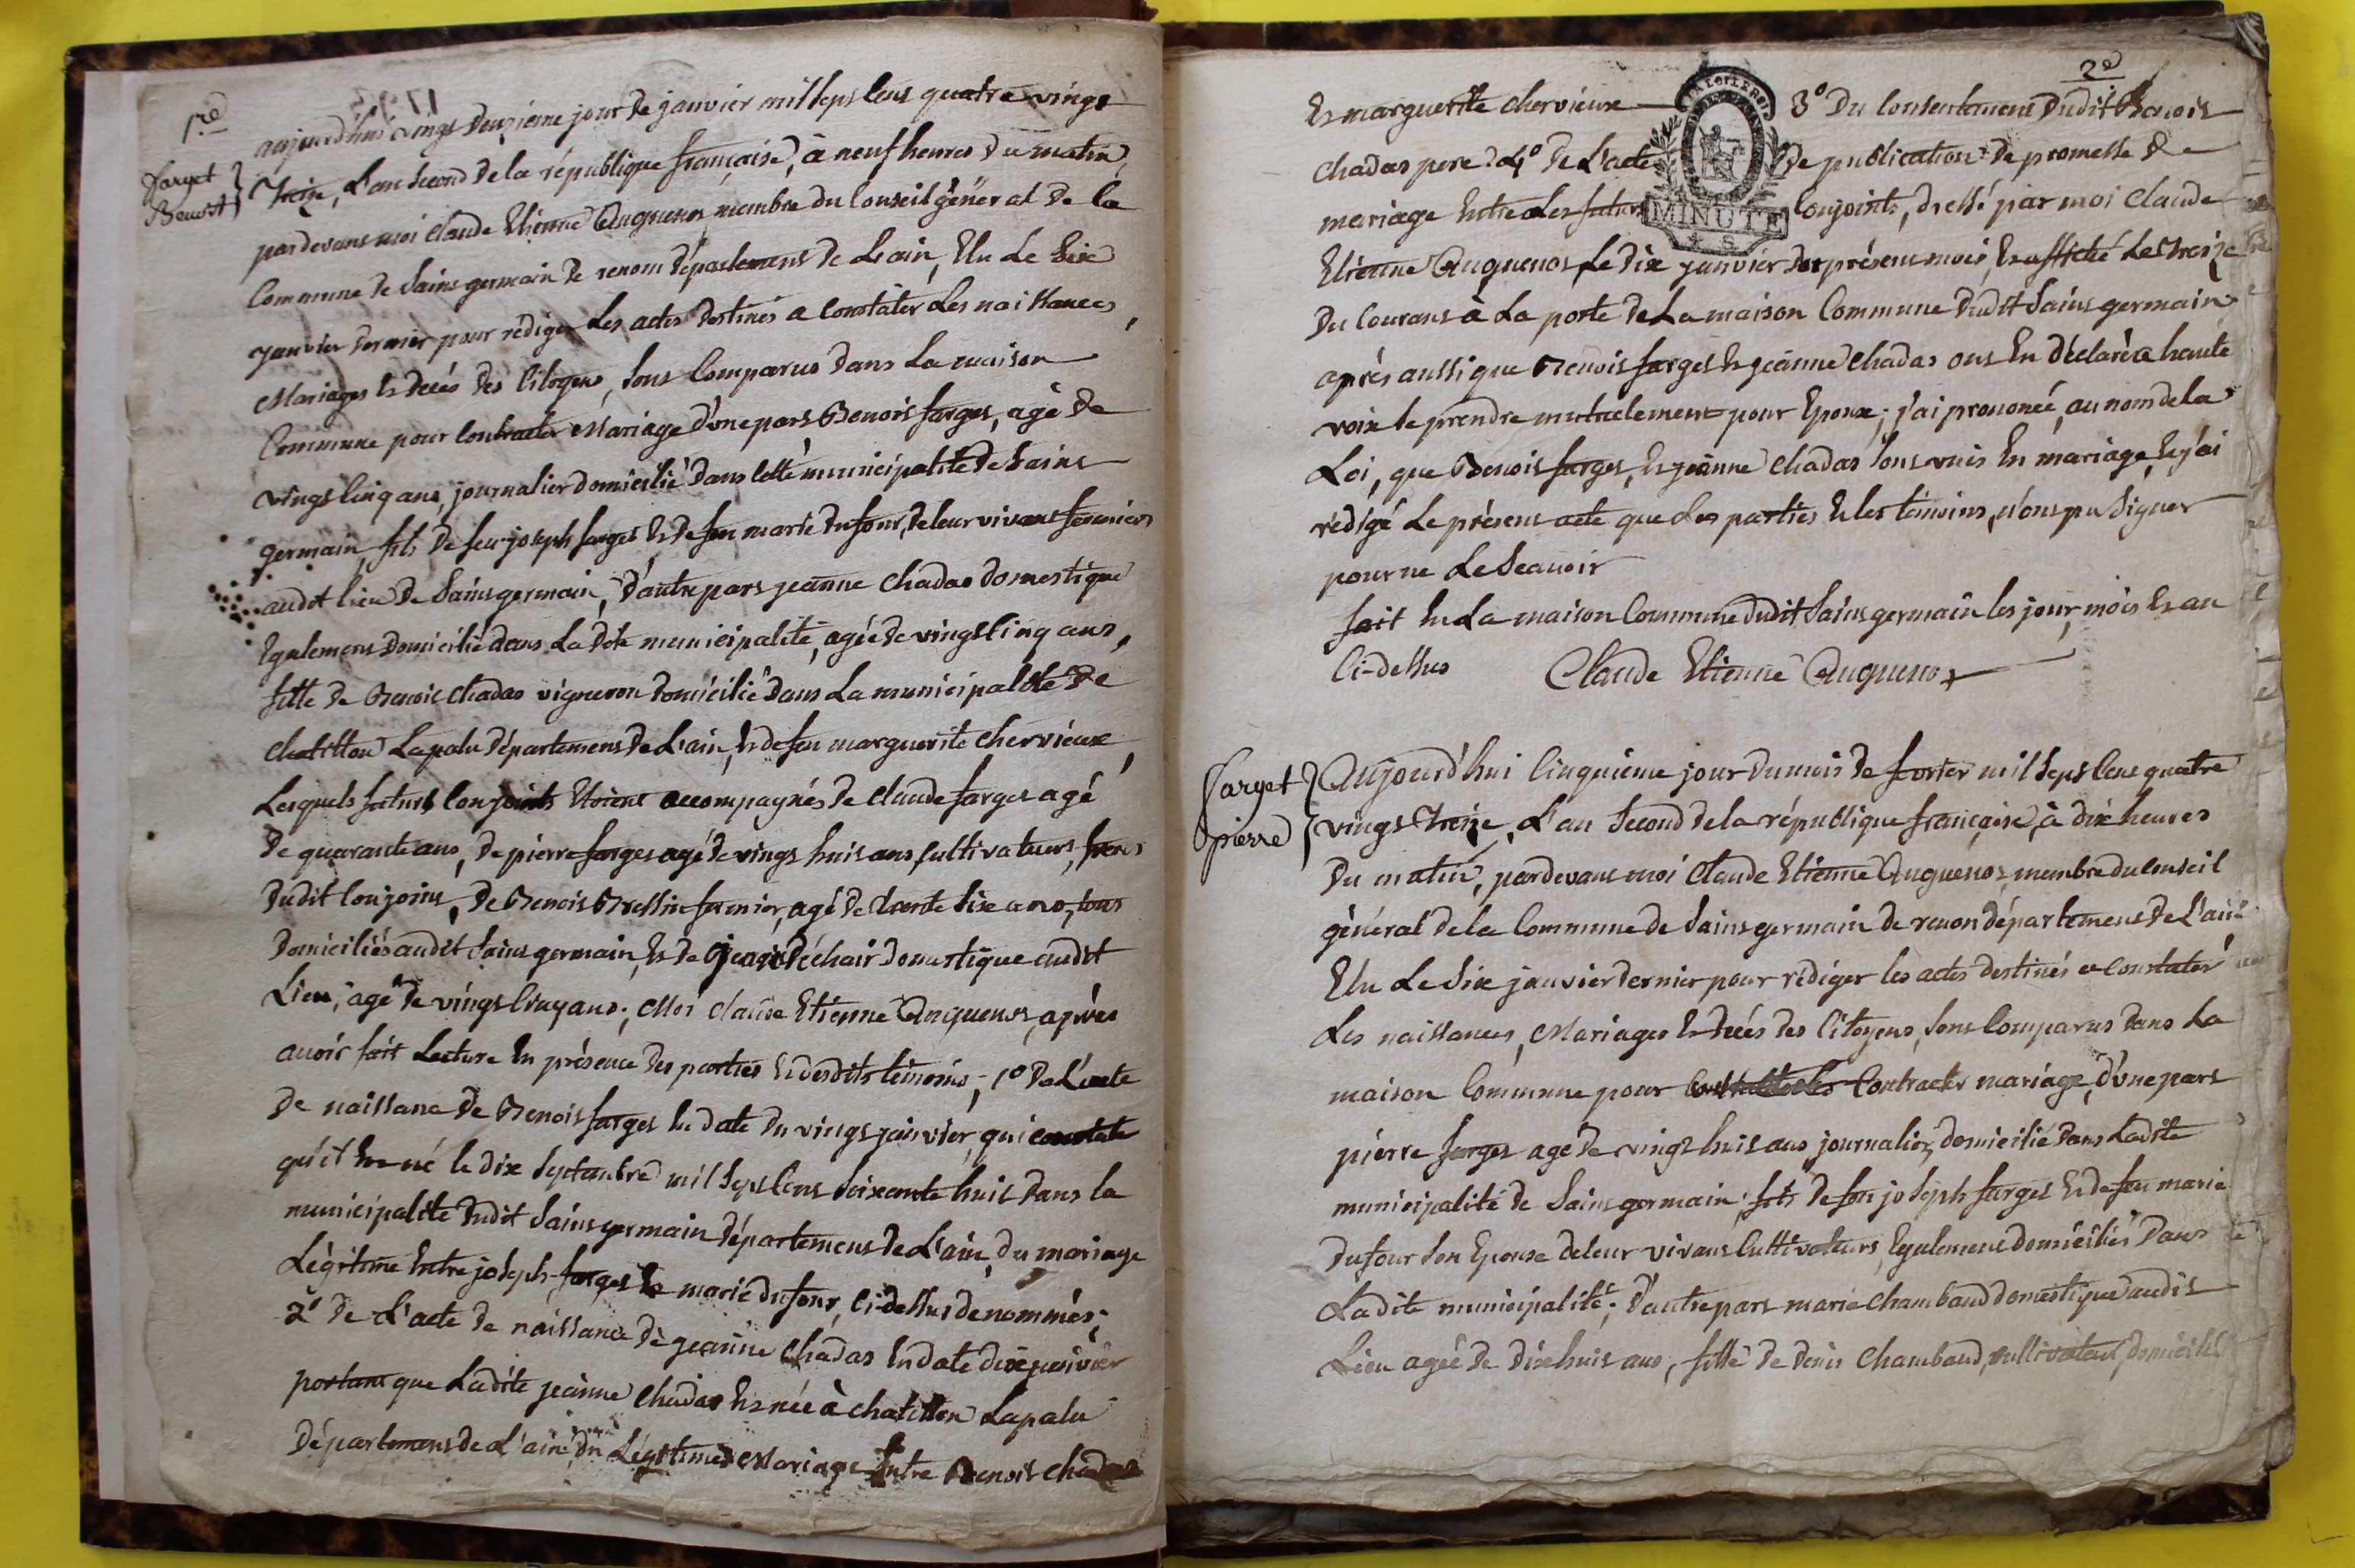 1re
Farget
Benoist
aujourd'hui vingt deuxieme jour de janvier mil sept cent quatre vingt
Treize, L'an Second de la république française, à neuf heures du matin,
pardevant moi Claude Etienne Auguenot membre du Conseil général de la
Commune de Saint germain de renom département de L'ain, Elu Le Six
janvier dernier pour rédiger Les actes destinés a constater Les naissances,
Mariages et decés des Citoyens, sont Comparus dans La maison
Commune pour contracter Mariage d'une part Benoit farget, agé de
vingt cinq ans, journalier domicilié dans cette municipalité de Saint
germain, fils de feu joseph farget et de feu marie dufour, de leur vivant fermiers
audit lieu de Saint germain, d'autre part jeanne Chadas domestique
Egalement domicilié dans La dite municipalité, agée de vingt cinq ans,
fille de Benoit Chadas vigneron domicilié dans La municipalité de
Chatillon Lapalu département de L'ain, et de feu marguerite chervieux,
Lesquels futurs Conjoints Etoient accompagnés de Claude farget agé
de quarante ans, de pierre farget agé de vingt huit ans, cultivateurs, freres
dudit Conjoint, de Benoit Bressin fermier, agé de trente six ans, tous
domiciliés audit Saint germain, et de déchair domestique audit
Lieu, agé de vingt cinq ans; Moi Claude Etienne Auguenot, après
avoir fait Lecture En présence des parties et desdits témoins; 1º de L'acte
de naissance de Benoit farget En date du vingt janvier, qui constate
qu'il est né le dix Septembre mil Sept Cent Soixante huit dans la
municipalité dudit Saint germain département de L'ain, du mariage
Légitime Entre joseph farget et marie dufour, Ci-dessus denommés;
2º de L'acte de naissance de jeanne Chadas En date dix janvier
portant que Ladite jeanne Chadas Est née à chatillon Lapalu
département de L'ain, du Légitime Mariage Entre Benoit Chadas
2e
Et marguerite chervieux 3º Du Consentement dudit Benoit
Chadas pere 4º de L'acte de publication de promesse de
MINUTE
mariage Entre Les futurs Conjoints, dressé par moi Claude
Etienne Auguenot, Le dix janvier du présent mois, Et affiché Le treize
du Courant à La porte de La maison Commune dudit Saint germain
après aussi que Benoit farget Et jeanne Chadas ont En déclaré a haute
voix se prendre mutuelement pour Epoux; j'ai prononcé, au nom de la
Loi, que Benoit farget, Et jeanne Chadas sont unis En mariage, Et j'ai
rédigé Le présent acte que Les parties Et les témoins, n'ont pu Signer
pour ne Le Scavoir
fait En La maison Commune dudit Saint germain les jour, mois Et an
Ci-dessus Claude Etienne Auguenot
Farget
pierre
Aujourd'hui Cinquieme jour du mois de fevrier mil Sept Cent quatre
vingt Treize, L'an Second de la république française, à dix heures
du matin, pardevant moi Claude Etienne Auguenot, membre du Conseil
général de la Commune de Saint germain de renon département de L'ain
Elu Le Six janvier dernier pour rédiger les actes destinés a Constater
Les naissances, Mariages Et decés des Citoyens, sont Comparus dans La
maison Commune pour Contracter mariage, d'une part
pierre farget agé de vingt huit ans journalier, domicilié dans Ladite
municipalité de Saint germain, fils de feu joseph farget Et de feu marie
dufour son Epouse de leur vivant Cultivateurs, Egalement domiciliés dans
Ladite municipalité; d'autre part marie Chambaud domestique audit
Lieu agée de dix huit ans, fille de denis Chambaud, cultivateur, domicilié